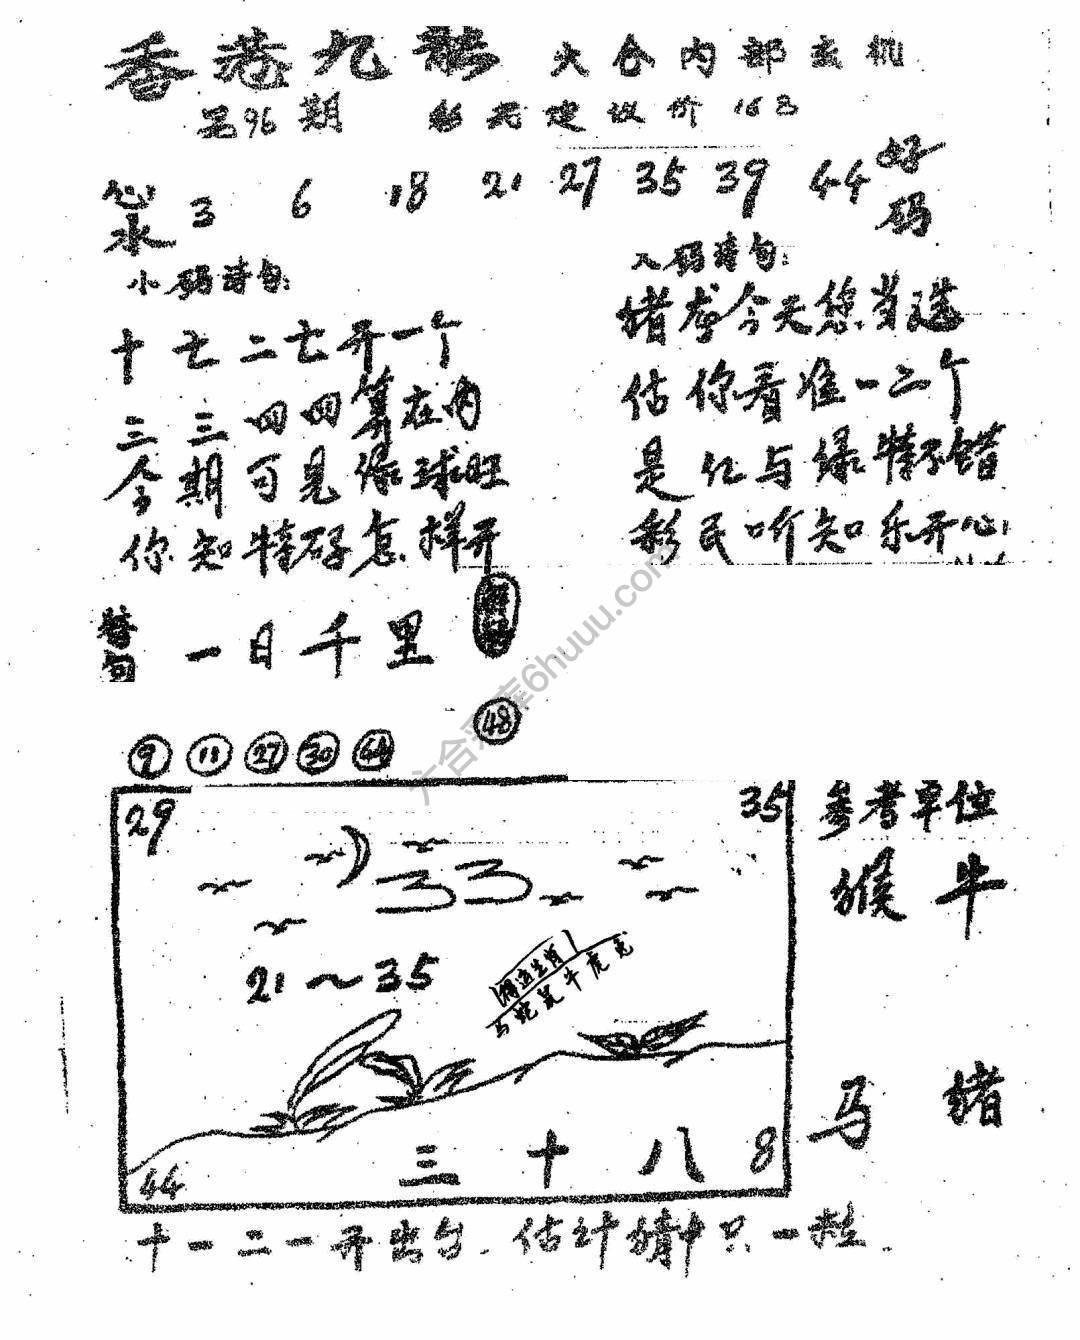 香港九龙 六合内部玄机
另96期 彩名建议价163
心水 3 6 18 21 27 35 39 44 好码
小码诗句:
十七二七开一个
三三四四算在内
今期可见绿球旺
你知特码怎样开
入码诗句:
猪龙今天您当选
估你看准一二个
是红与绿特不错
彩民听知乐开心
替句 一日千里
48
9 11 27 30 44
29 35
21～35
马蛇鼠牛虎兔
44 三十八 8
参考单位
猴 牛
马 猪
十一二一开出台.估计猜中只一粒.
六合彩库6huuu.com